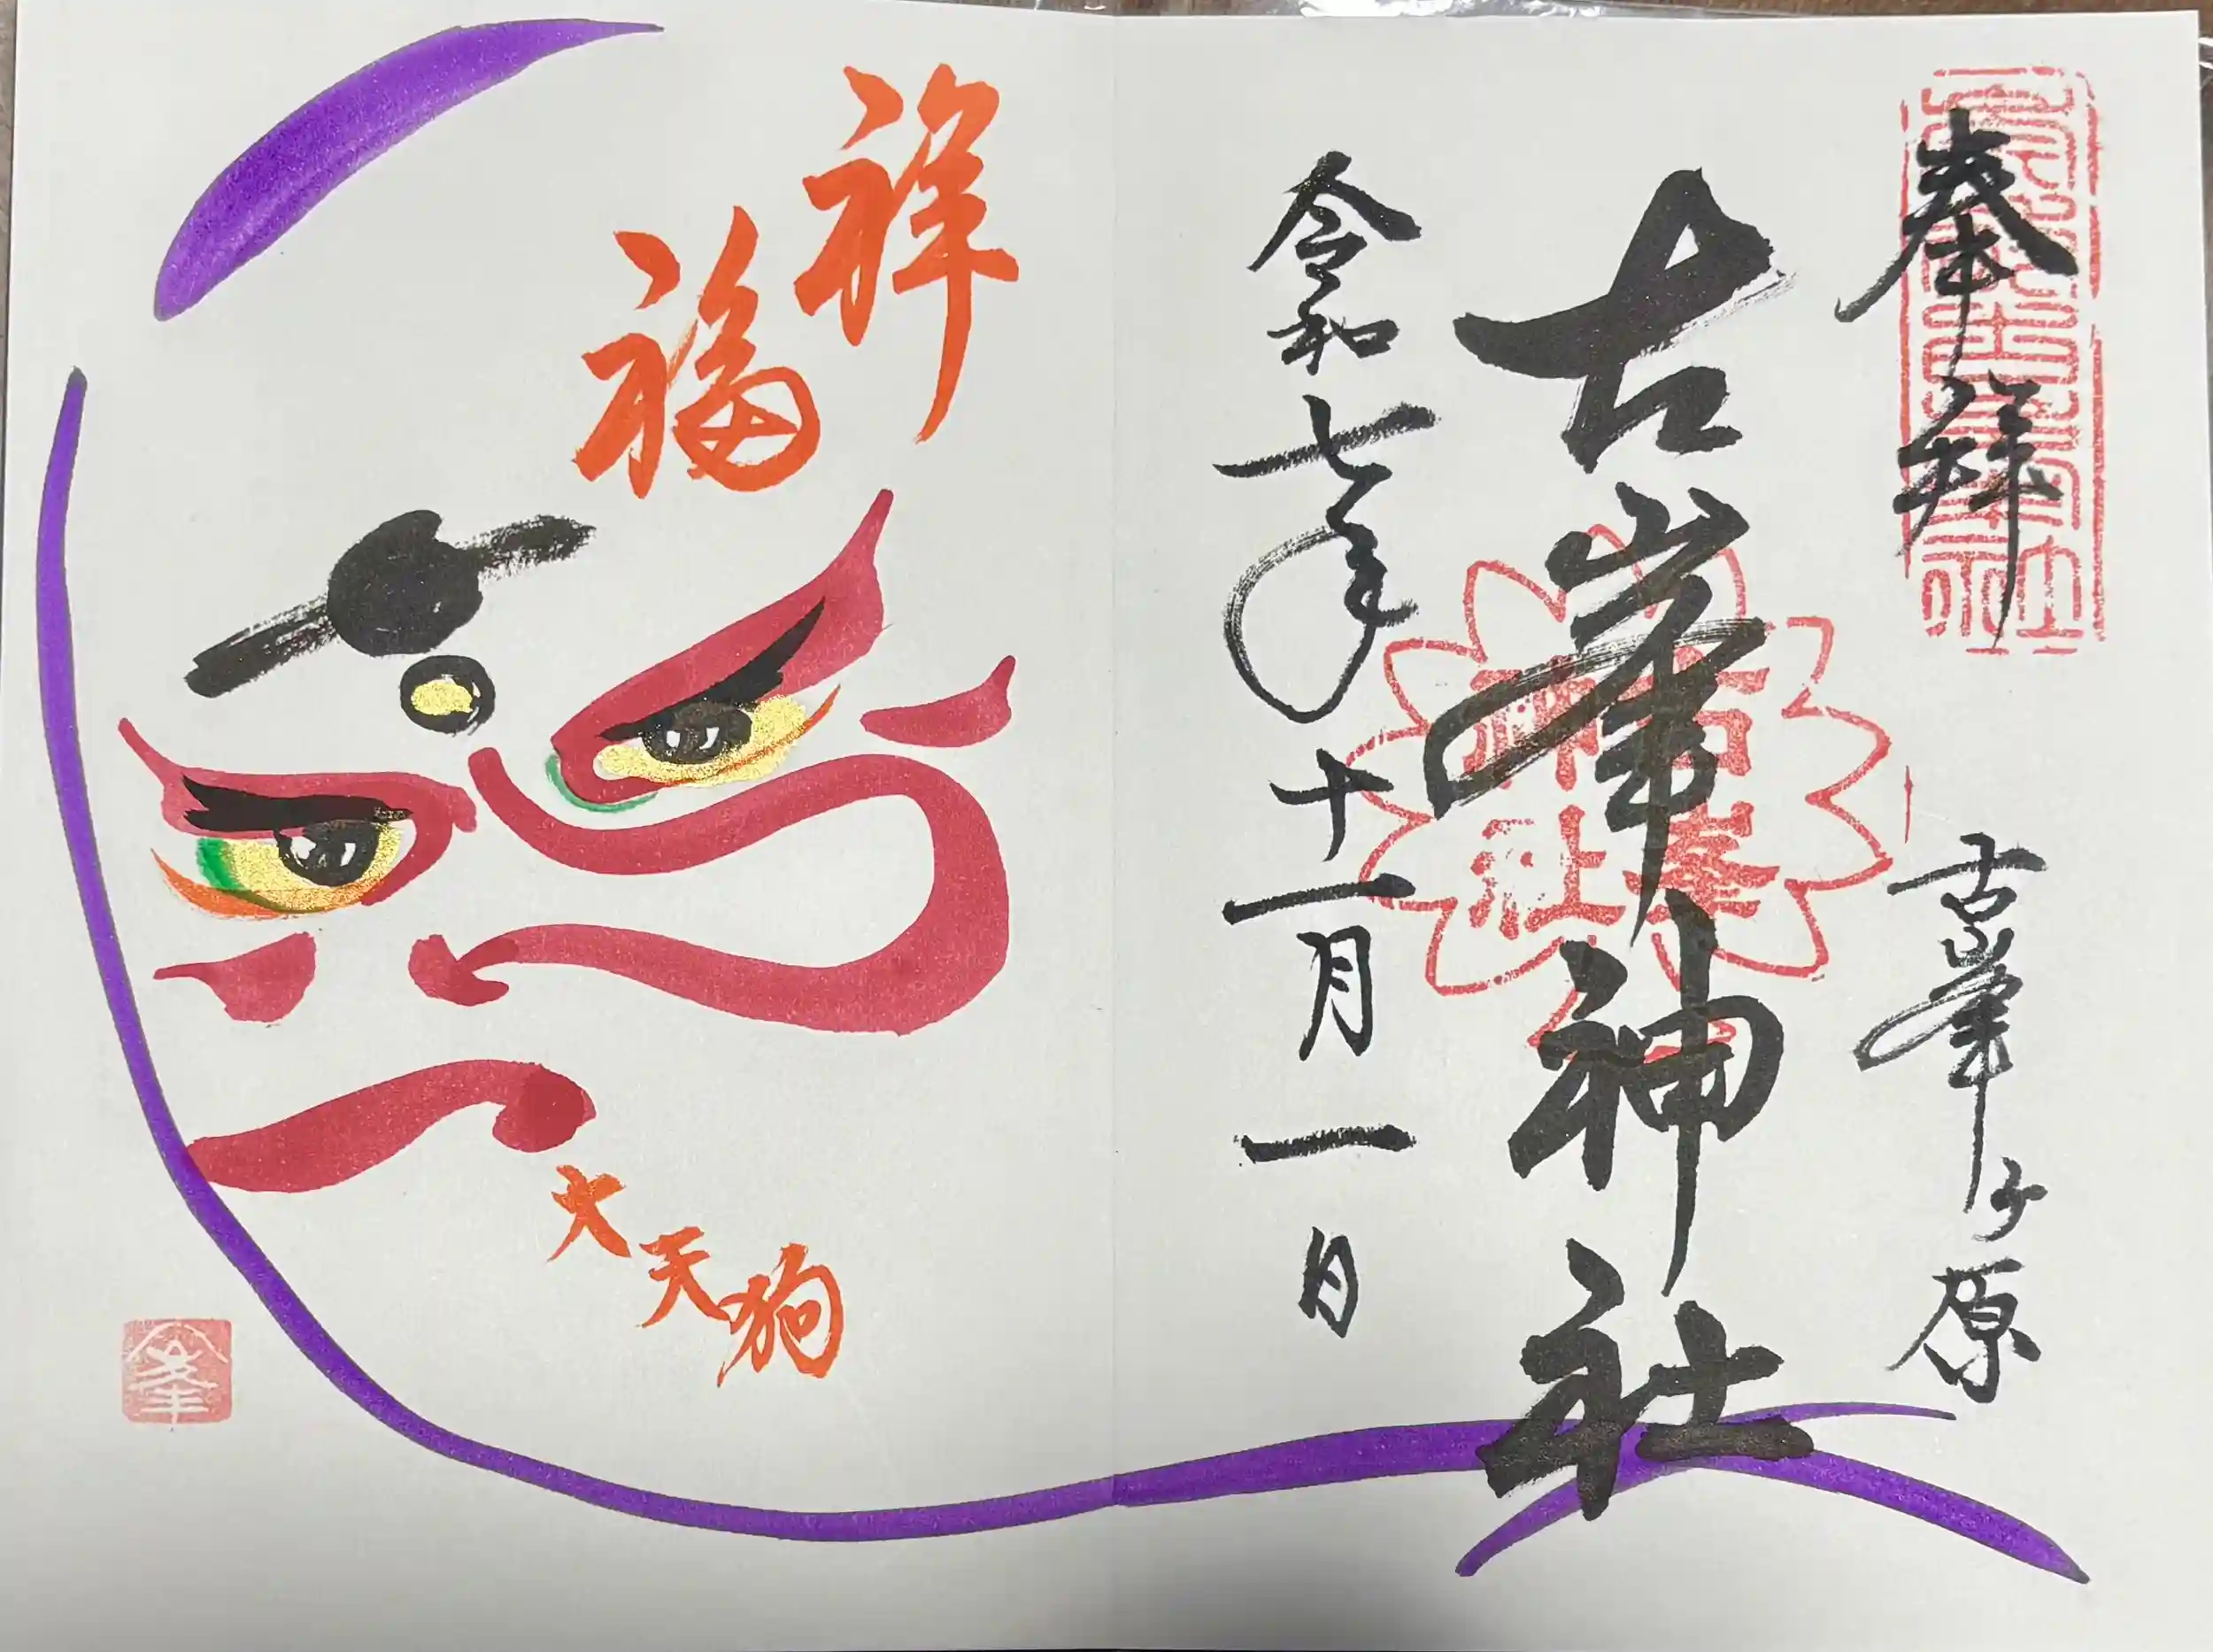 奉拝
古峯ヶ原
古峯神社
古峯
神社
令和七年十一月一日
祥
福
大天狗
峯